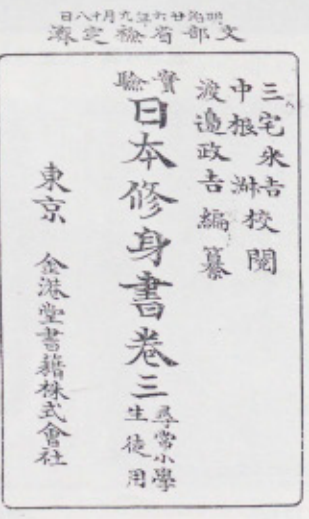 明治廿六年九月十八日
文部省檢定濟
三宅米吉
中根淑校閲
渡邊政吉編纂
實驗
日本修身書卷三
尋常小學
生徒用
東京 金港堂書籍株式會社